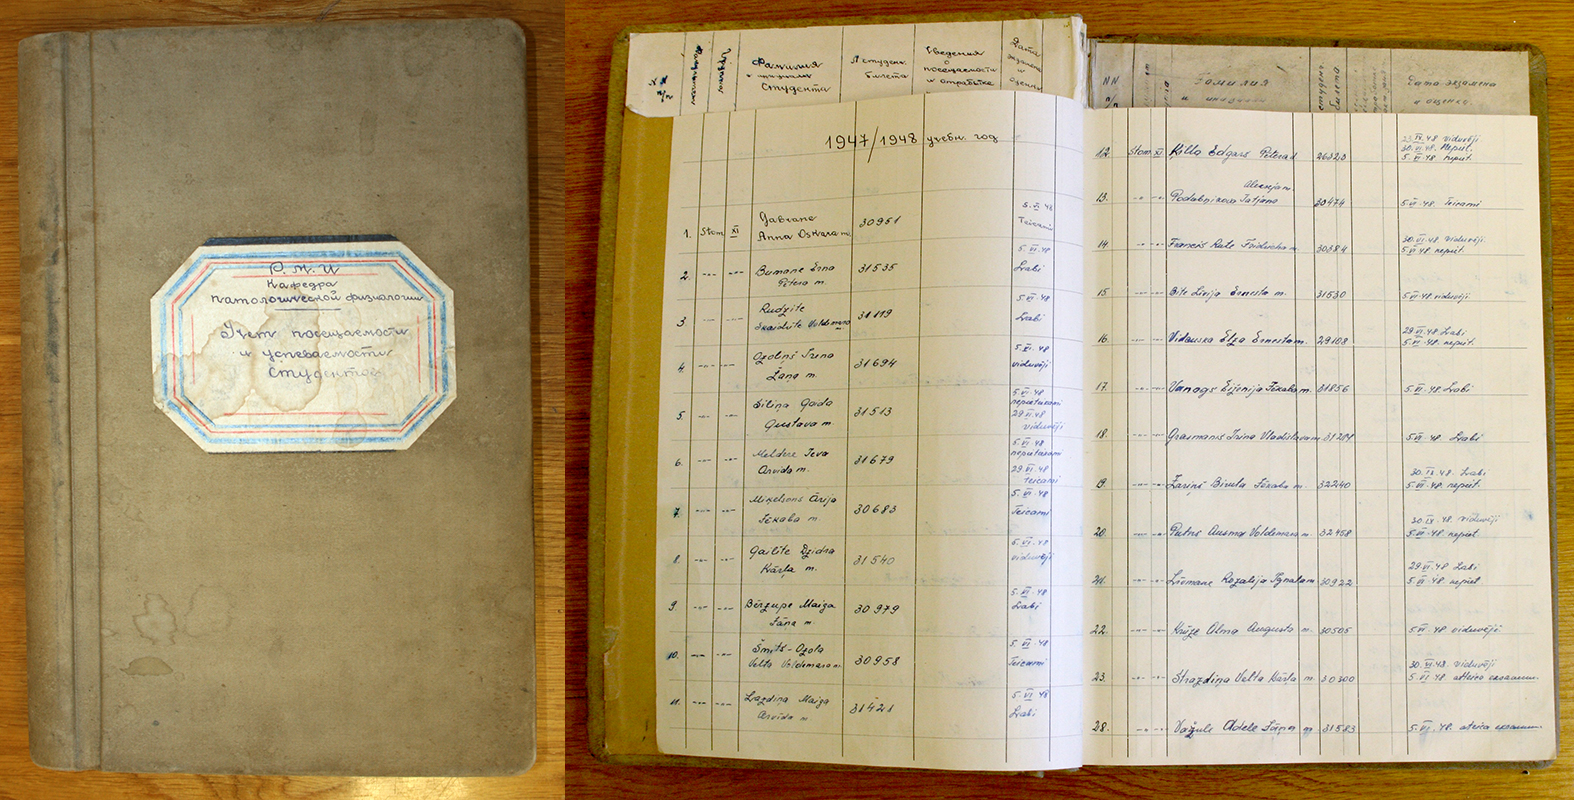 Р. М. И
Кафедра
патологической физиологии
Учет посещаемости
и успеваемости
студентов
№№ п/п
Факультет
Группа
Фамилия
и инициалы
студента
№ студен.
билета
Сведения
о
посещаемости
и отработке
Дата
экзамена
и
оценка
1947/1948 учебн. год
1. Stom. XI Gabrane Anna Oskara m. 30951 5.VI.48 Teicami
2. -"- -"- Bumane Erna Pētera m. 31535 5.VI.48 Labi
3. -"- -"- Rudzīte Skaidrīte Voldemāra 31119 5.VI.48 Labi
4. -"- -"- Ozoliņš Irēna Žaņa m. 31694 5.VI.48 viduvēji
5. -"- -"- Siliņa Gaida Gustava m. 31513 5.VI.48 nepietiekami 29.VI.48 viduvēji
6. -"- -"- Meldere Ieva Arvīda m. 31679 5.VI.48 29.VI.48 Teicami
7. -"- -"- Miķelsons Ārija Jēkaba m. 30683 5.VI.48 Teicami
8. -"- -"- Gailīte Dzidra Kārļa m. 31540 5.VI.48 viduvēji
9. -"- -"- Bērzupe Maiga Jāņa m. 30979 5.VI.48 Labi
10. -"- -"- Šmits-Ozola Velta Voldemāra m. 30958 5.VI.48 Teicami
11. -"- -"- Lazdiņa Maiga Arvīda m. 31421 5.VI.48 Labi
NN п/п
Фамилия
и инициалы
студенч.
билета
Дата экзамена
и оценка
12. Stom. XI Ķilla Edgars Pētera d. 26323 viduvēji 30.VI.48 Nepiet. 5.VI.48 nepiet.
13. -"- -"- Podabņikova Tatjana Alekseja m. 30474 5.VI.48 Teicami
14. -"- -"- Francis Rute Fridricha m. 30384 30.VI.48 viduvēji 5.VI.48 nepiet.
15. -"- -"- Bite Līvija Ernesta m. 31530 5.VI.48 viduvēji
16. -"- -"- Vidauska Elza Ernesta m. 29108 29.VI.48 Labi 5.VI.48 nepiet.
17. -"- -"- Vanags Eiženija Jēkaba m. 31856 5.VI.48 Labi
18. -"- -"- Grasmanis Irina Vladislava m. 31284 5.VI.48 Labi
19. -"- -"- Zariņš Biruta Jēkaba m. 32240 Labi 5.VI.48 nepiet.
20. -"- -"- Putns Ausma Voldemāra m. 32458 viduvēji 5.VI.48 nepiet.
21. -"- -"- Līvmane Rozalija Ignata m. 30922 29.VI.48 Labi 5.VI.48 nepiet
22. -"- -"- Krūze Alma Augusta m. 30505 5.VI.48 viduvēji
23. -"- -"- Strazdiņa Velta Kārļa m. 30300 30.VI.48 viduvēji 5.VI.48 atteica eksāmen.
28. -"- -"- Važule Adele Jāņa m. 31583 5.VI.48 atteica eksāmen.